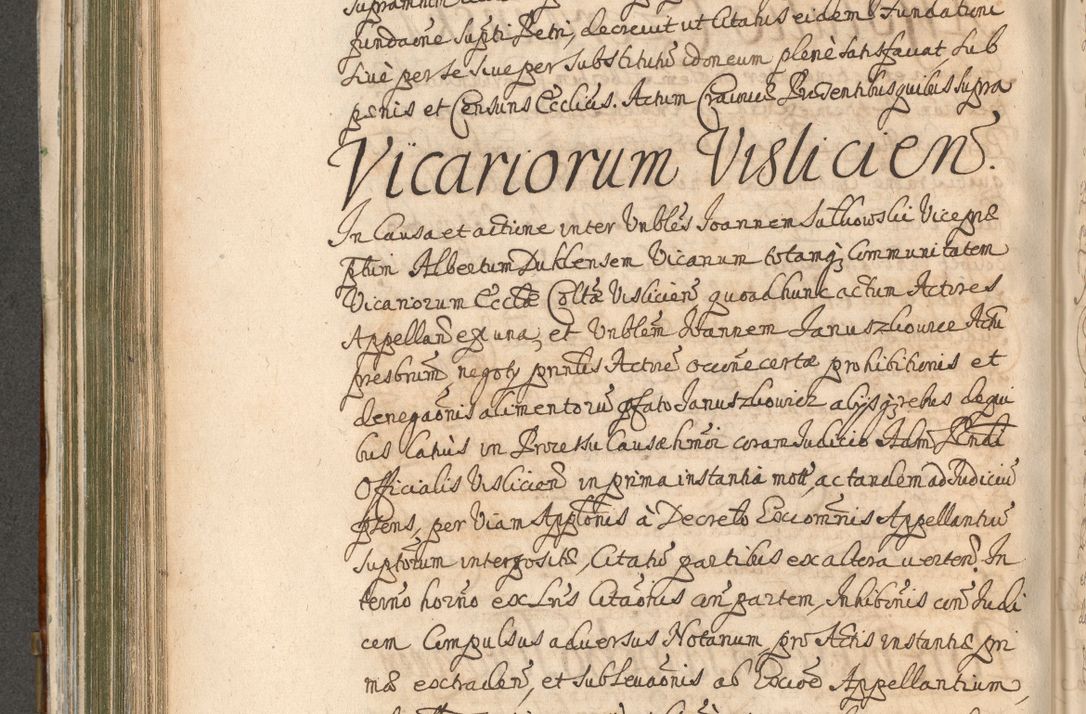 fundaõne supti Petri, decrevit ut Citatus eidem Fundationi
sive per se sive per substitutũ idoneum plenè satisfaciat, sub
pænis et Censuris Ecclicis. Actum Cracoviæ Præsentibus quibus supra
Vicariorum Vislicien̄.
In Causa et actione inter Vnbles Joannem Sulkowski Vicepræ
ptum Albertum Duklensem Vicarium totamq; Communitatem
Vicariorum Ecclæ Coltæ Vislicien̄ quoad hunc actum Actores
Appellan̄ ex una, et Vnblem Joannem Januszkowicz Actu
presbrum, negoty pnntis Actorē occõne certæ prohibitionis et
denegaõnis alimentorũ pfato Januszkowicz alysq; rebus de qui
bus latiùs in Processu Causæ hmõi coram Judicio Adm Rendi
Officialis Vislicien̄ in prima instantia mott, ac tandem ad Judiciũ
pñs, per Viam Appltõnis à Decreto Exciomñis Appellantiũ
suptorum interpositæ, Citatũ partibus ex altera verten̄. In
termõ hornõ ex Lris Citaõris con̄ partem, Inhibõnis con̄ Judi
cem Compulsus adversus Notarium, pro Actis instantiæ pri
mæ extraden̄, et sublevaõnis ab Excioẽ Appellantium,